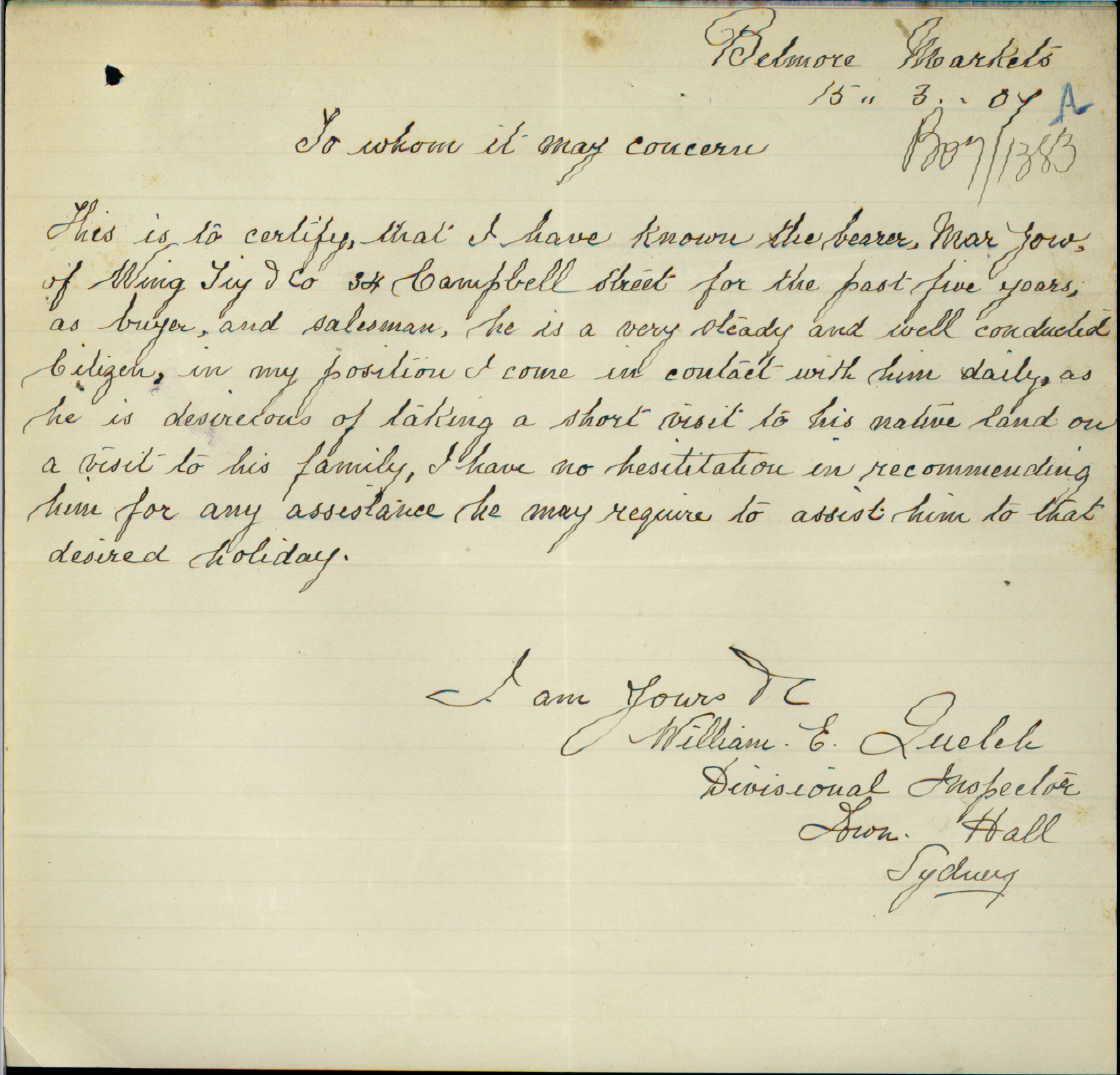 Belmore Markets
15 " 3 .. 07 A
B07/1383
To whom it may concern
This is to certify, that I have known the bearer, Mar Jow,
of Wing Tiy & Co 34 Campbell street for the past five years,
as buyer, and salesman, he is a very steady and well conducted
Citizen, in my position I come in contact with him daily, as
he is desireious of taking a short visit to his native land on
a visit to his family, I have no hesititation in recommending
him for any assistance he may require to assist him to that
desired holiday.
I am Yours &c
William. E. Quelch
Divisional Inspector
Town. Hall
Sydney